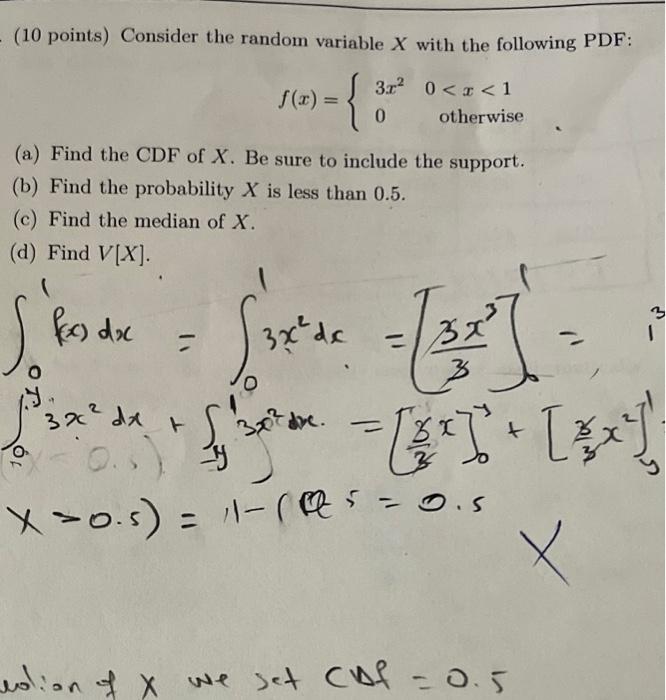 (10 points) Consider the random variable X with the following PDF:
f(x) = { 3x² 0 < x < 1
0 otherwise
(a) Find the CDF of X. Be sure to include the support.
(b) Find the probability X is less than 0.5.
(c) Find the median of X.
(d) Find V[X].
∫₀¹ f(x) dx = ∫₀¹ 3x² dx = [3x³/3]₀¹ = 1³
3x² dx + ∫ 3x² dx = [3/3 x]₀ʸ + [3/3 x²]
X > 0.5) = 1-( 5 = 0.5
X
of X we set CDf = 0.5